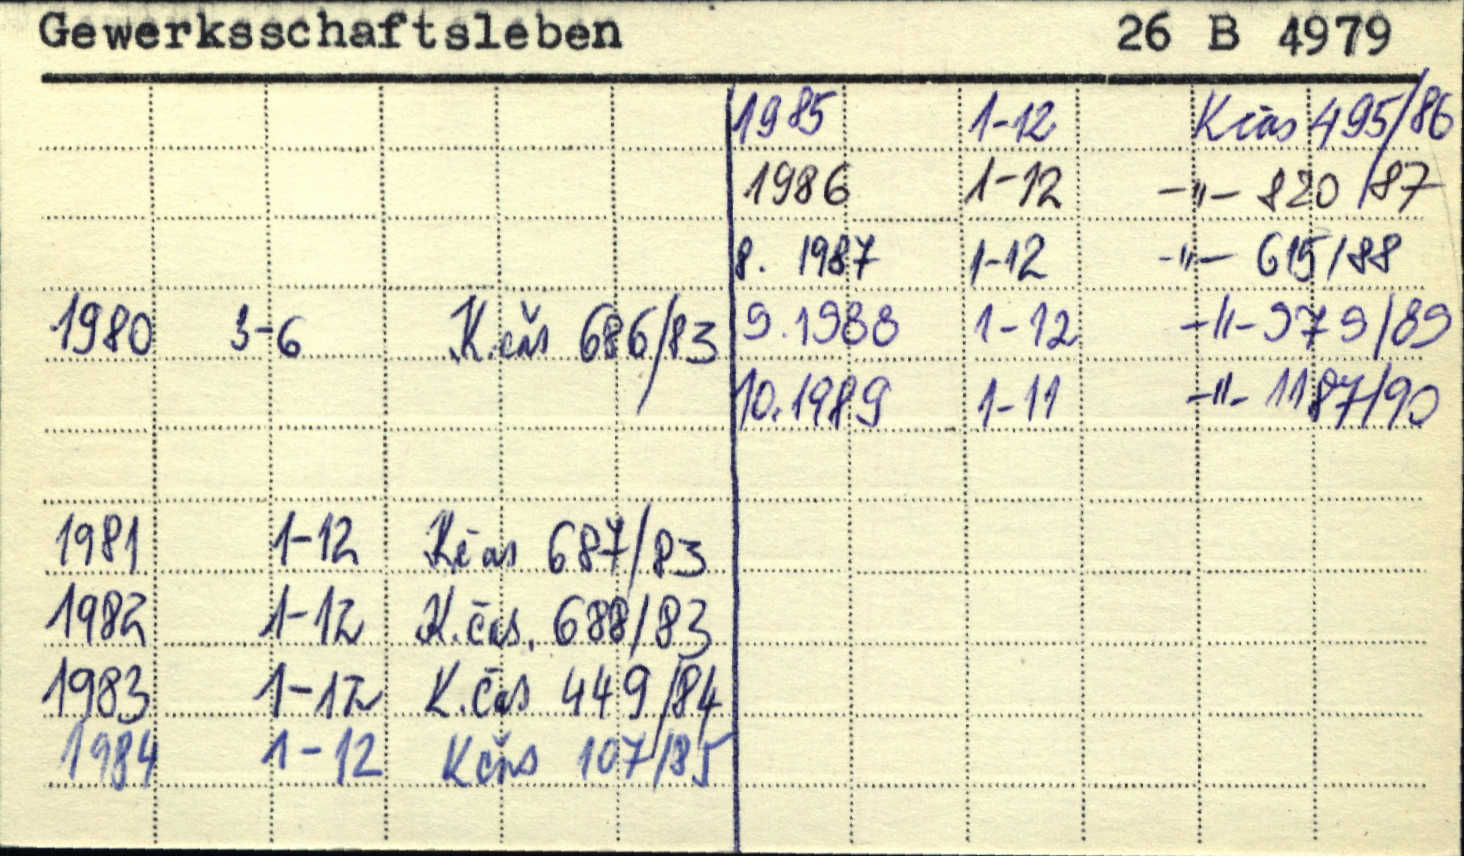 Gewerksschaftsleben 26 B 4979
1980 3-6 K.čas 686/83
1981 1-12 Kčas 687/83
1982 1-12 K.čas. 688/83
1983 1-12 K.čas 449/84
1984 1-12 Kčas 107/85
1985 1-12 Kčas 495/86
1986 1-12 -"- 820/87
8. 1987 1-12 -"- 615/88
9. 1988 1-12 -"- 979/89
10. 1989 1-11 -"- 1187/90